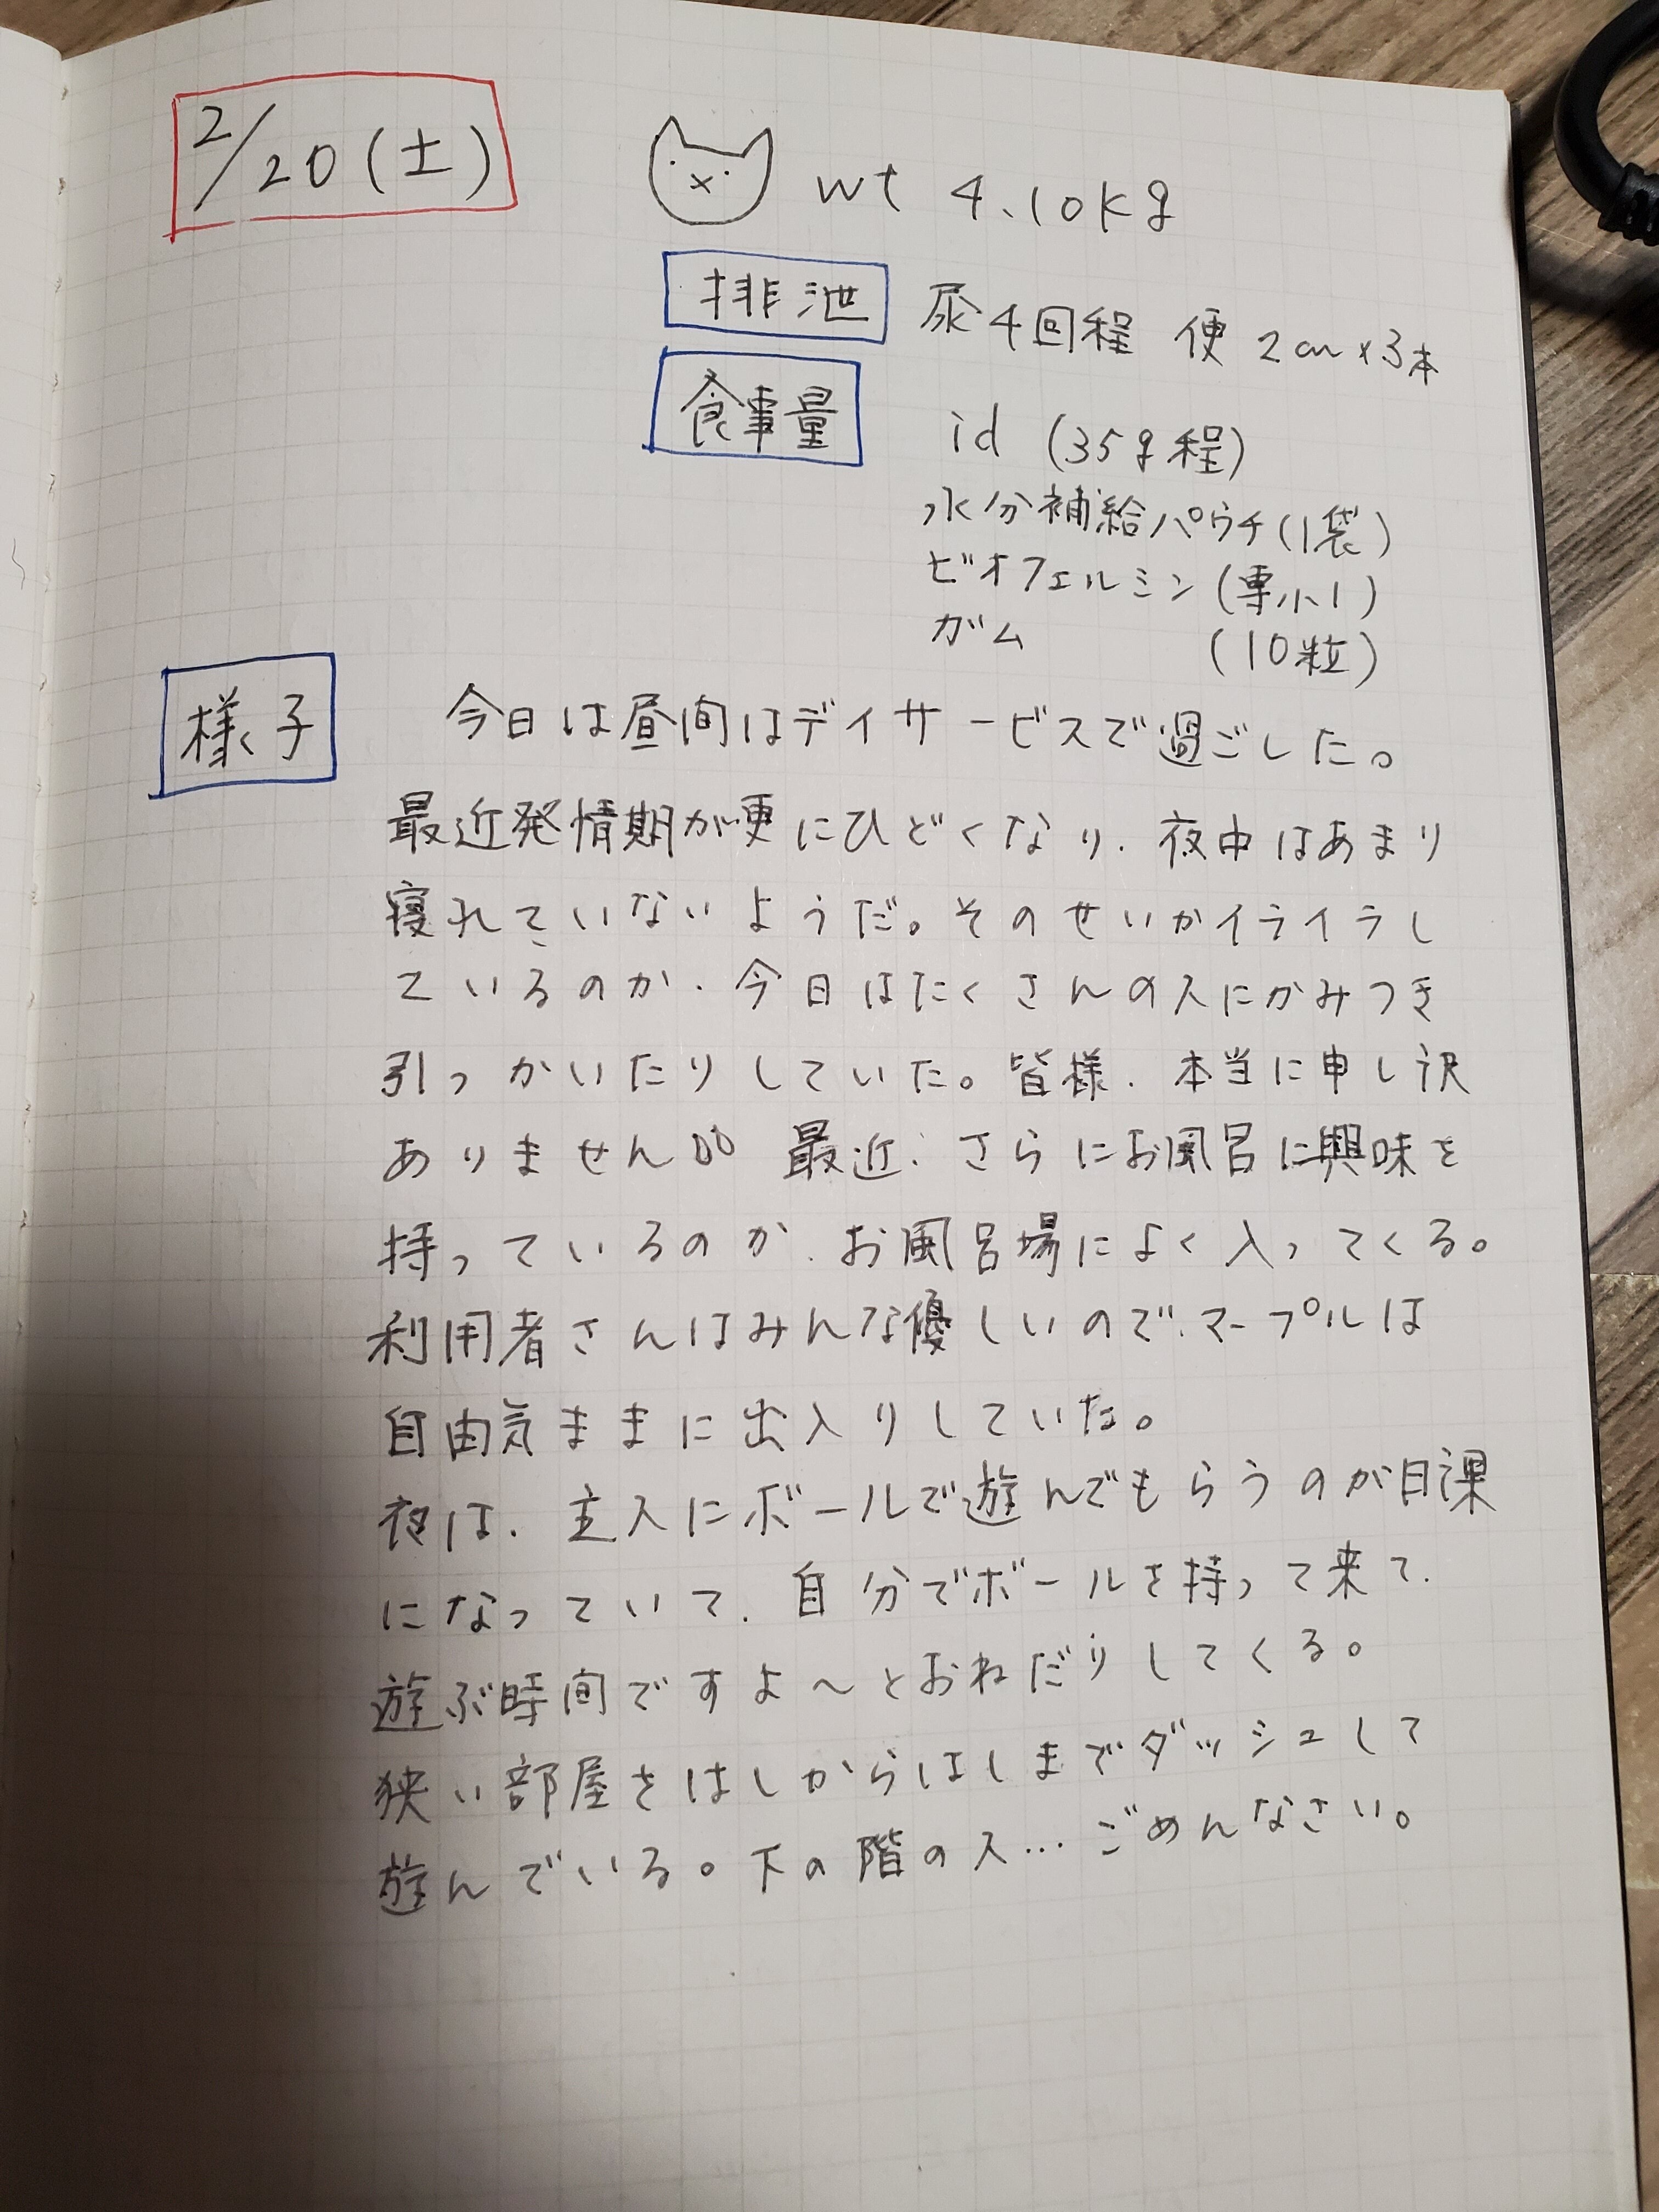 2/20(土)
wt 4.10kg
排泄 尿4回程 便 2cm×3本
食事量 id (35g程)
水分補給パウチ(1袋)
ビオフェルミン(専小1)
ガム (10粒)
様子 今日は昼間はデイサービスで過ごした。
最近発情期が更にひどくなり、夜中はあまり
寝れていないようだ。そのせいかイライラし
ているのか、今日はたくさんの人にかみつき
引っかいたりしていた。皆様、本当に申し訳
ありません 最近、さらにお風呂に興味を
持っているのか、お風呂場によく入ってくる。
利用者さんはみんな優しいので、マープルは
自由気ままに出入りしていた。
夜は、主人にボールで遊んでもらうのが日課
になっていて、自分でボールを持って来て、
遊ぶ時間ですよ～とおねだりしてくる。
狭い部屋をはしからはしまでダッシュして
遊んでいる。下の階の人…ごめんなさい。